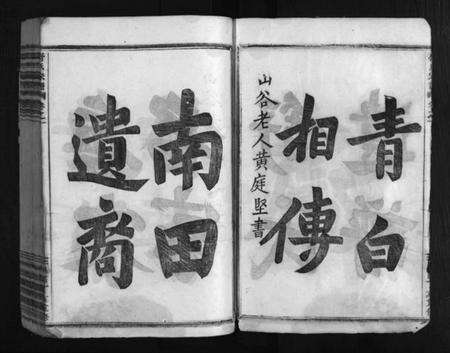 青白
相傳
山谷老人黄庭坚書
南田
遺裔